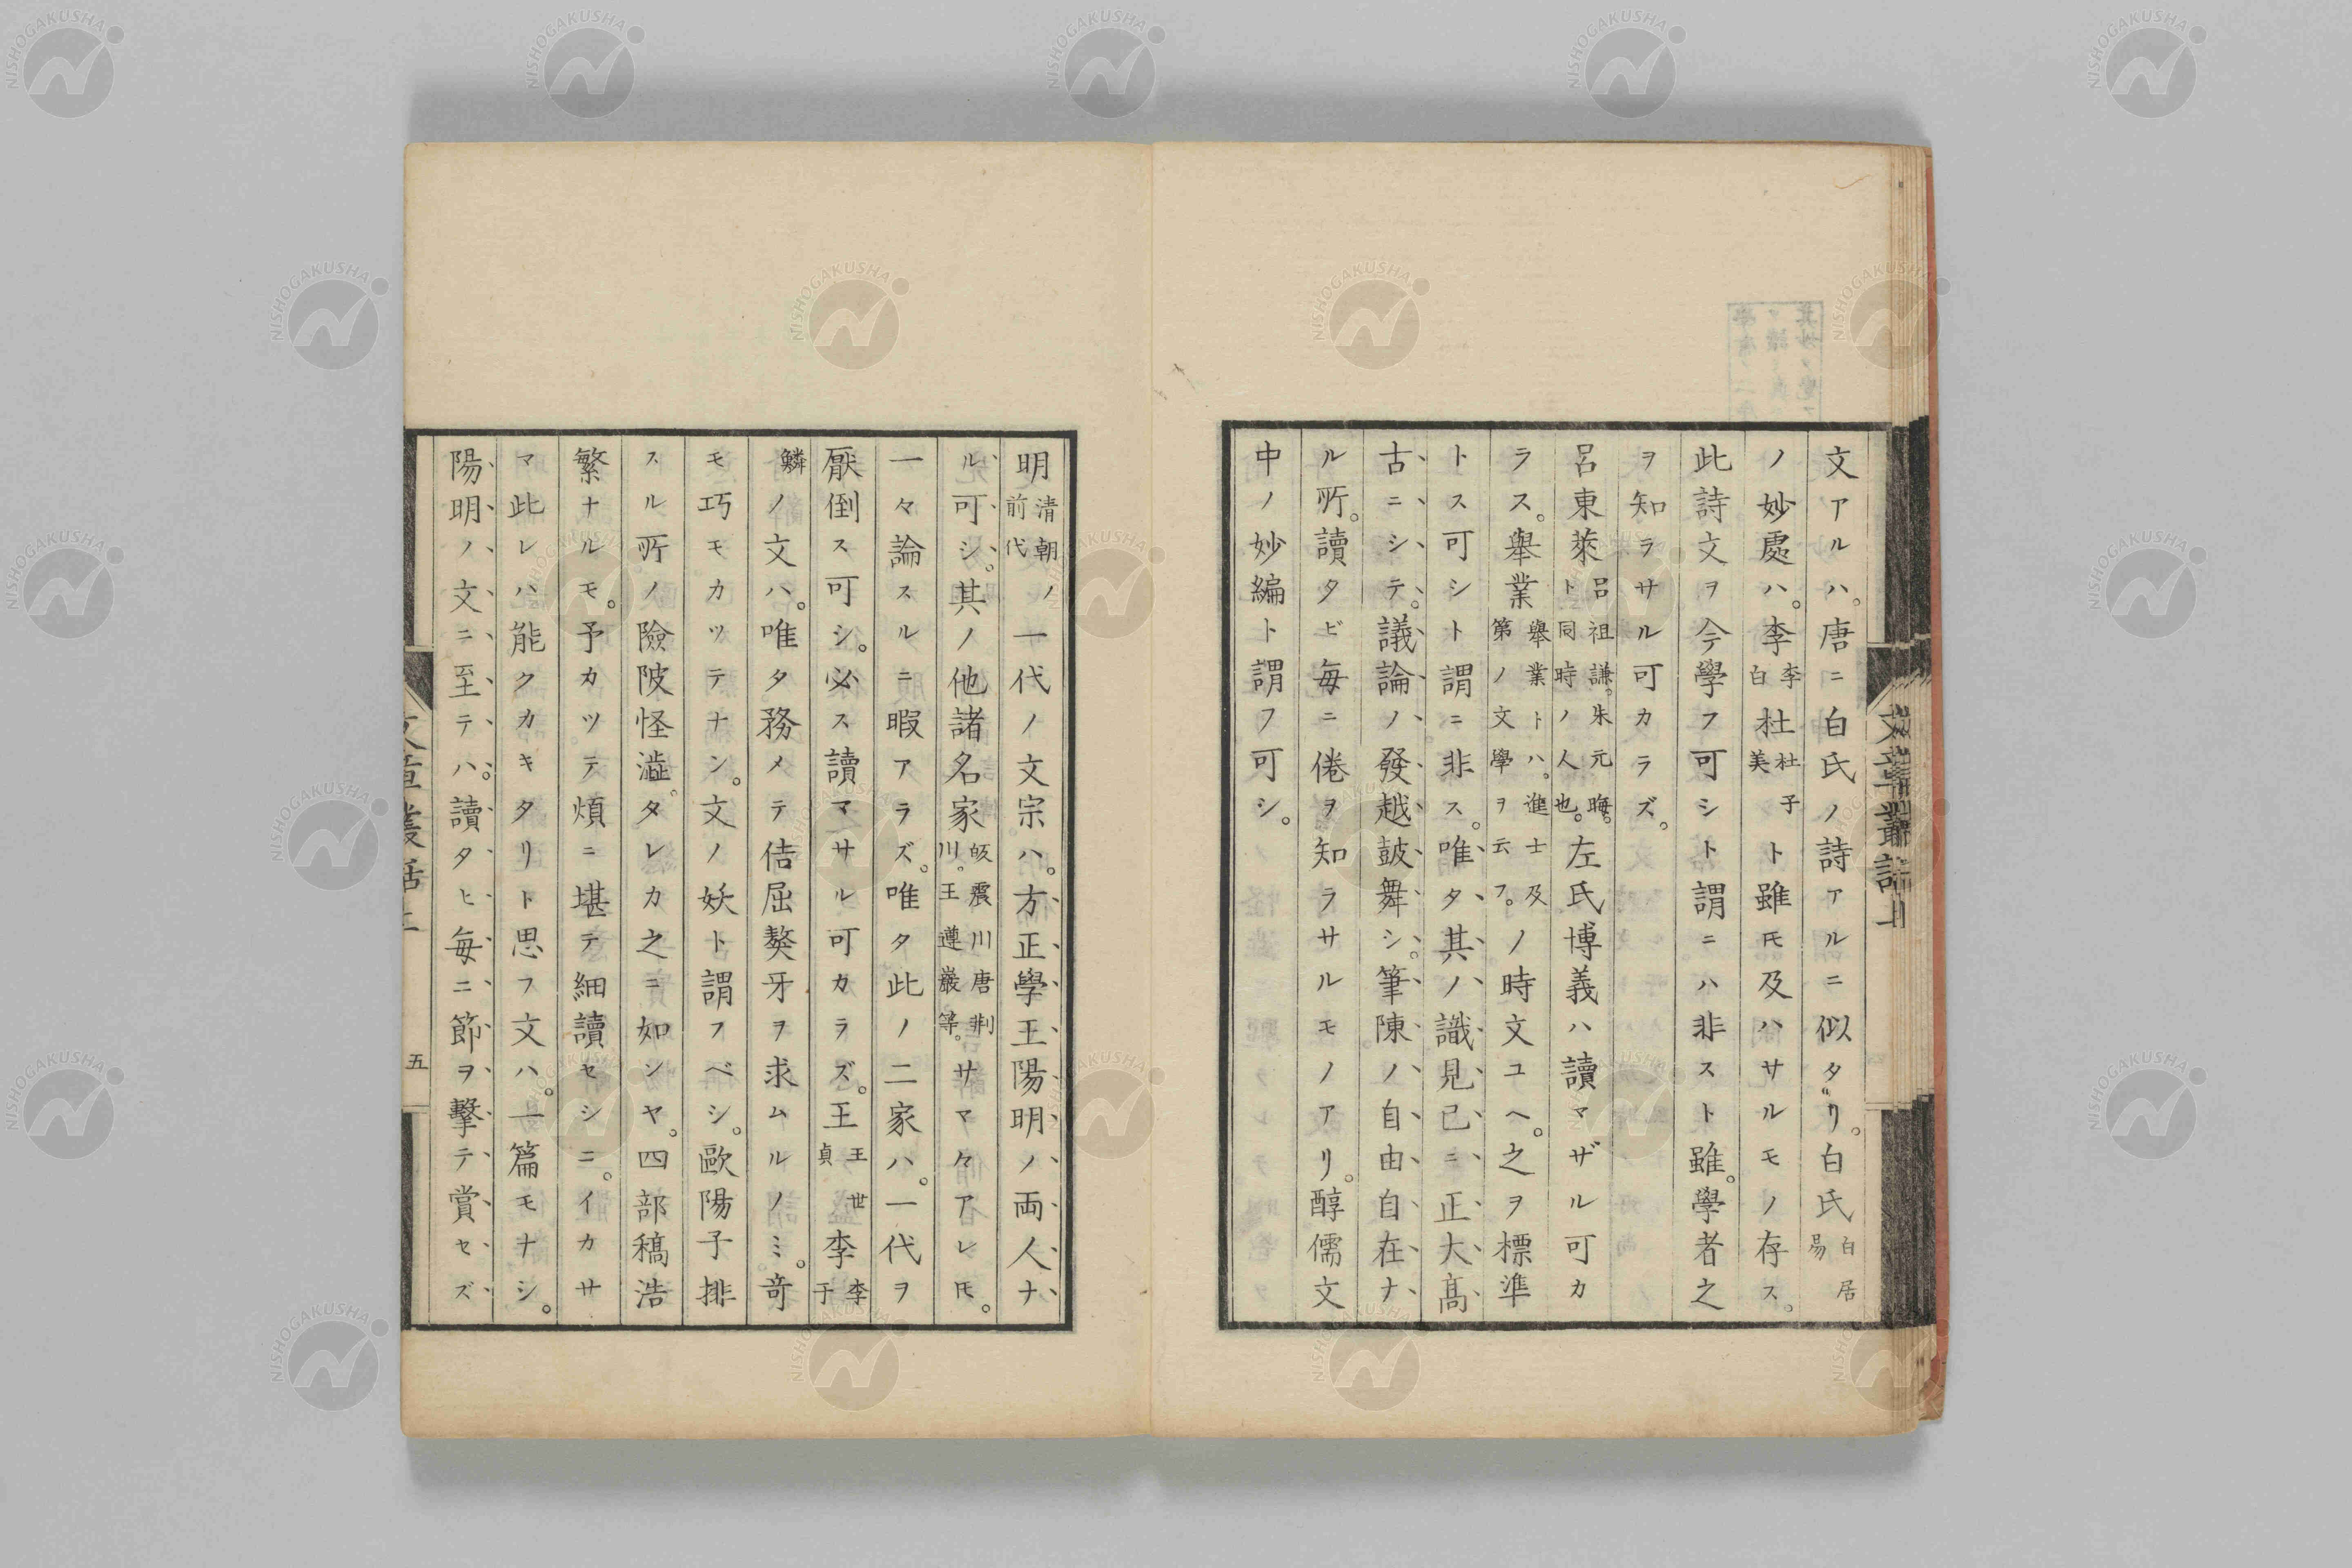 文アルハ。唐ニ白氏ノ詩アルニ似タリ。白氏白居易
ノ妙處ハ。李李白杜杜子美ト雖𪜈及ハサルモノ存ス。
此詩文ヲ今學フ可シト謂ニハ非スト雖。學者之
ヲ知ラサル可カラズ。
呂東萊呂祖謙。朱元晦。ト同時ノ人也。左氏博義ハ讀マザル可カ
ラス。舉業舉業トハ。進士及第ノ文學ヲ云フ。ノ時文ユヘ。之ヲ標準
トス可シト謂ニ非ス。唯タ其ノ識見已ニ正大髙
古ニシテ。議論ノ發越鼓舞シ。筆陳ノ自由自在ナ
ル所。讀タビ毎ニ倦ヲ知ラサルモノアリ。醇儒文
中ノ妙編ト謂フ可シ。
文章叢話上
明清朝前代ノ一代ノ文宗ハ。方正學王陽明ノ両人ナ
ル可シ。其ノ他諸名家皈震川唐荆川。王遵巖等。サマ々アレ𪜈。
一々論スルニ暇アラズ。唯タ此ノ二家ハ。一代ヲ
厭倒ス可シ。必ス讀マサル可カラズ。王王世貞李李于
鱗ノ文ハ。唯タ務メテ佶屈聱牙ヲ求ムルノミ。竒
モ巧モカツテナシ。文ノ妖ト謂フベシ。歐陽子排
スル所ノ險陂怪澁。タレカ之ニ如シヤ。四部稿浩
繁ナルモ。予カツテ煩ニ堪テ細讀セシニ。イカサ
マ此レハ能クカキタリト思フ文ハ。一篇モナシ。
陽明ノ文ニ至テハ。讀タヒ毎ニ節ヲ擊テ賞セズ
文章叢話上
五
NISHOGAKUSHA